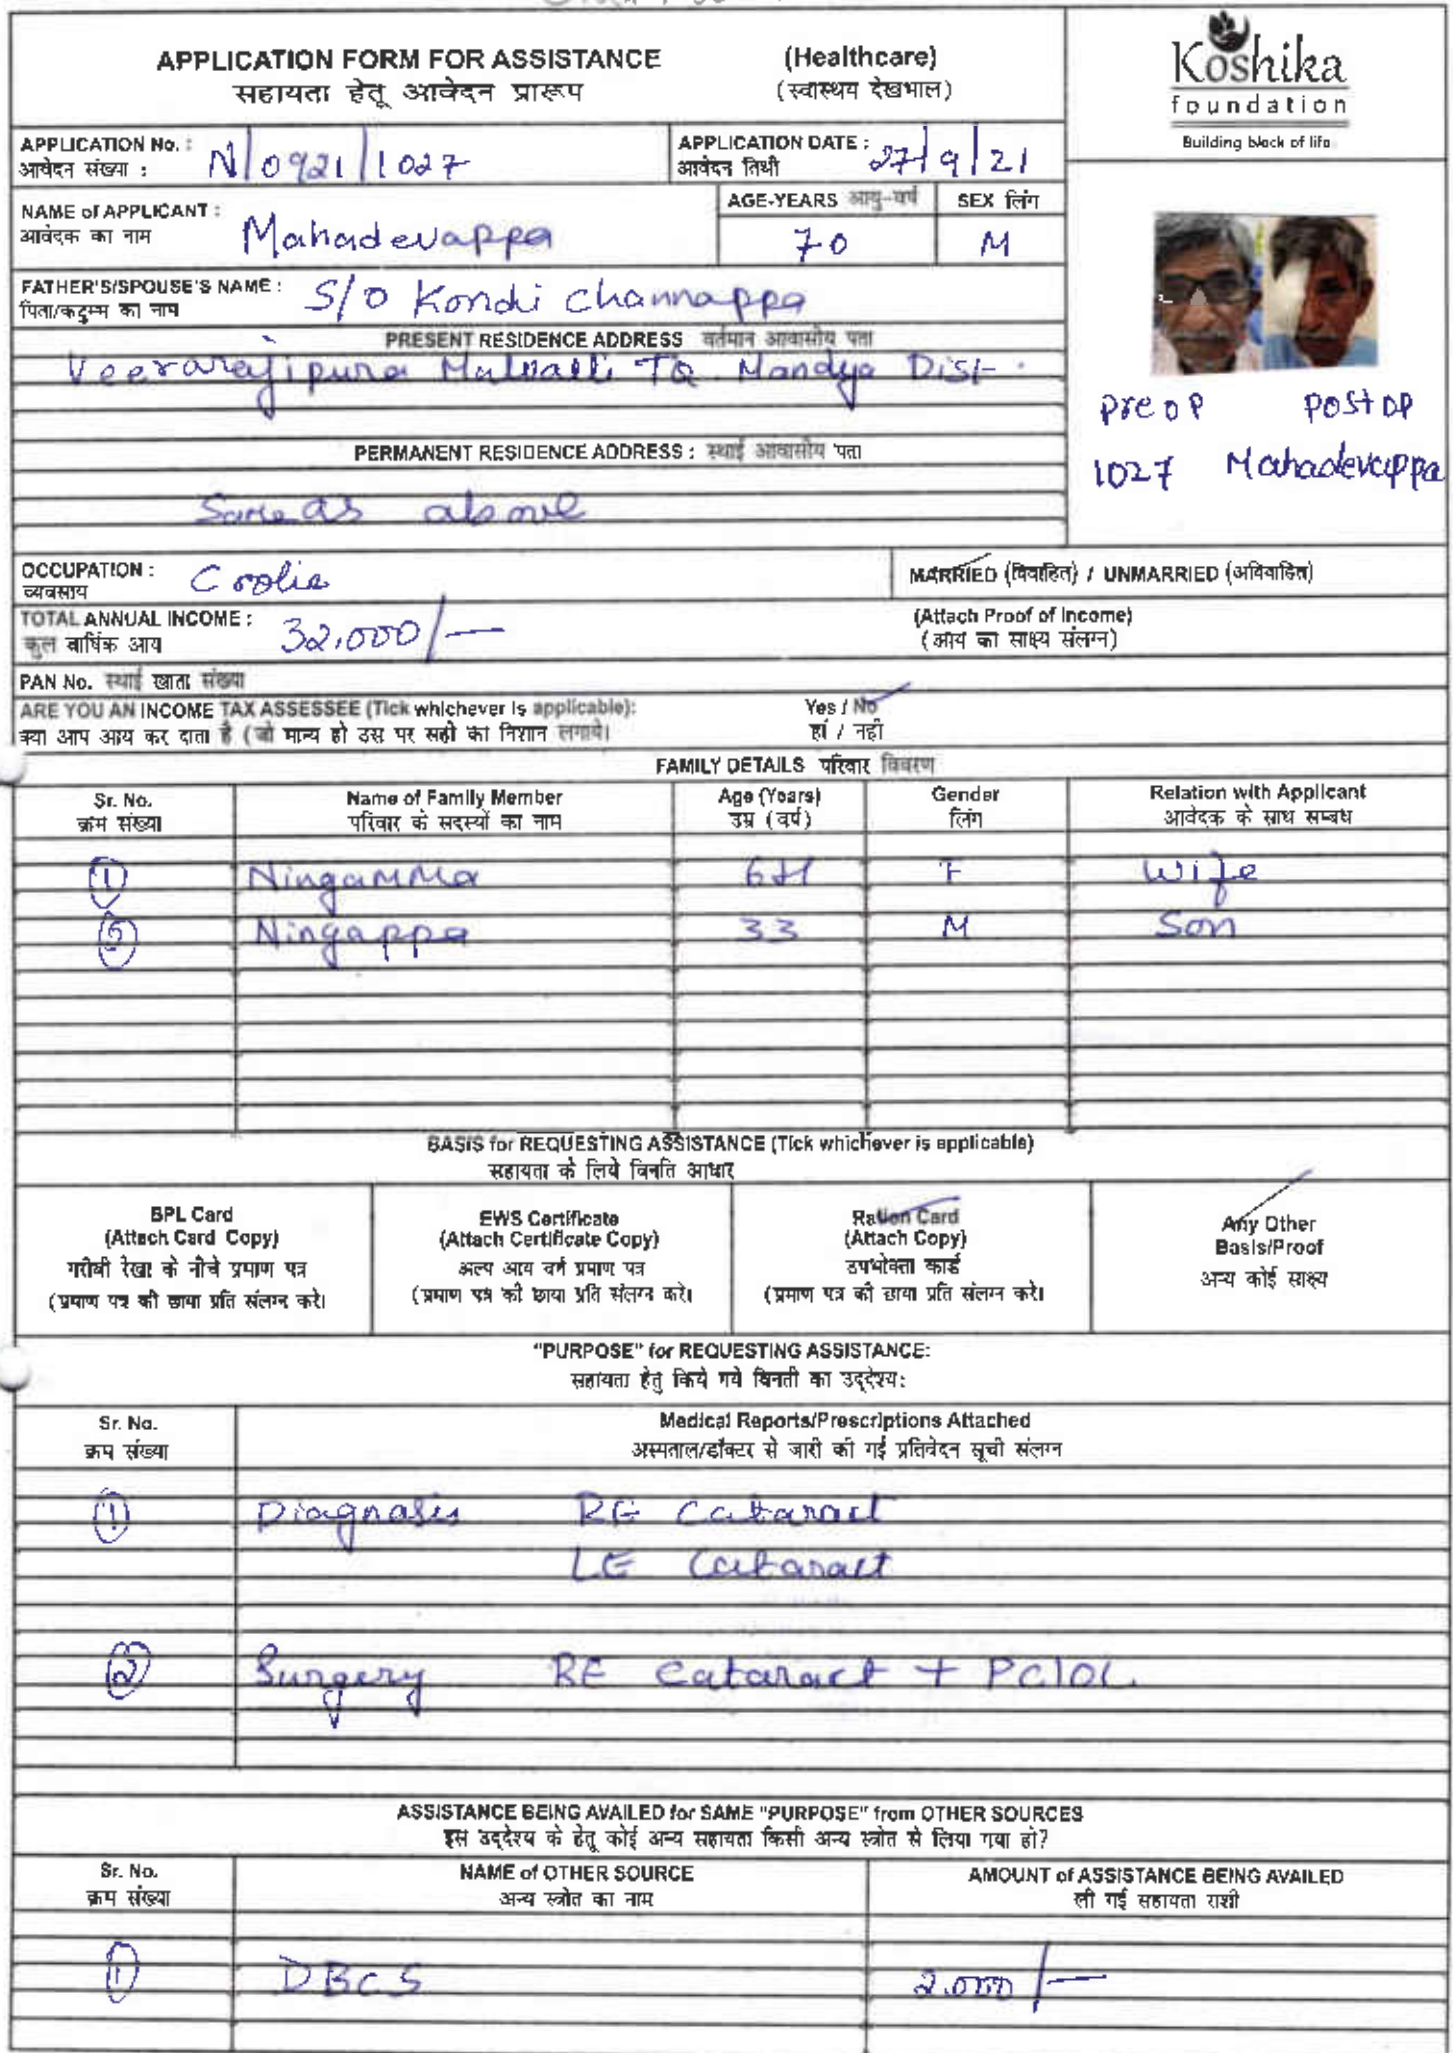 APPLICATION FORM FOR ASSISTANCE (Healthcare)
सहायता हेतू आवेदन प्रारूप (स्वास्थय देखभाल)
Koshika
foundation
Building block of life
APPLICATION No. : N/0921/1027
आवेदन संख्या :
APPLICATION DATE : 27/9/21
आवेदन तिथी
NAME of APPLICANT : Mahadevappa
आवेदक का नाम
AGE-YEARS आयु-वर्ष 70
SEX लिंग M
FATHER'S/SPOUSE'S NAME : S/O Kondi Channappa
पिता/कटुम्म का नाम
PRESENT RESIDENCE ADDRESS वर्तमान आवासीय पता
Veerarajipura Malvalli TQ Mandya Dist.
pre op post op
1027 Mahadevappa
PERMANENT RESIDENCE ADDRESS : स्थाई आवासीय पता
Same as above
OCCUPATION : Coolie
व्यवसाय
MARRIED (विवाहित) / UNMARRIED (अविवाहित)
TOTAL ANNUAL INCOME : 32,000/-
कुल वार्षिक आय
(Attach Proof of Income)
(आय का साक्ष्य संलग्न)
PAN No. स्थाई खाता संख्या
ARE YOU AN INCOME TAX ASSESSEE (Tick whichever is applicable): Yes / No
क्या आप आय कर दाता है (जो मान्य हो उस पर सही का निशान लगाये। हां / नही
FAMILY DETAILS परिवार विवरण
Sr. No. Name of Family Member Age (Years) Gender Relation with Applicant
क्रम संख्या परिवार के सदस्यों का नाम उम्र (वर्ष) लिंग आवेदक के साथ सम्बध
1 Ningamma F Wife
Ningappa 33 M Son
BASIS for REQUESTING ASSISTANCE (Tick whichever is applicable)
सहायता के लिये विनति आधार
BPL Card
(Attach Card Copy)
गरीबी रेखा के नीचे प्रमाण पत्र
(प्रमाण पत्र की छाया प्रति संलग्न करे।
EWS Certificate
(Attach Certificate Copy)
अल्प आय वर्ग प्रमाण पत्र
(प्रमाण पत्र की छाया प्रति संलग्न करे।
Ration Card
(Attach Copy)
उपभोक्ता कार्ड
(प्रमाण पत्र की छाया प्रति संलग्न करे।
Any Other
Basis/Proof
अन्य कोई साक्ष्य
"PURPOSE" for REQUESTING ASSISTANCE:
सहायता हेतु किये गये विनती का उद्देश्य:
Sr. No. Medical Reports/Prescriptions Attached
क्रम संख्या अस्पताल/डॉक्टर से जारी की गई प्रतिवेदन सूची संलग्न
1 Diagnosis RE Cataract
LE Cataract
2 Surgery RE Cataract + PCIOL
ASSISTANCE BEING AVAILED for SAME "PURPOSE" from OTHER SOURCES
इस उद्देश्य के हेतू कोई अन्य सहायता किसी अन्य स्त्रोत से लिया गया हो?
Sr. No. NAME of OTHER SOURCE AMOUNT of ASSISTANCE BEING AVAILED
क्रम संख्या अन्य स्त्रोत का नाम ली गई सहायता राशी
1 DBCS 2,000/-